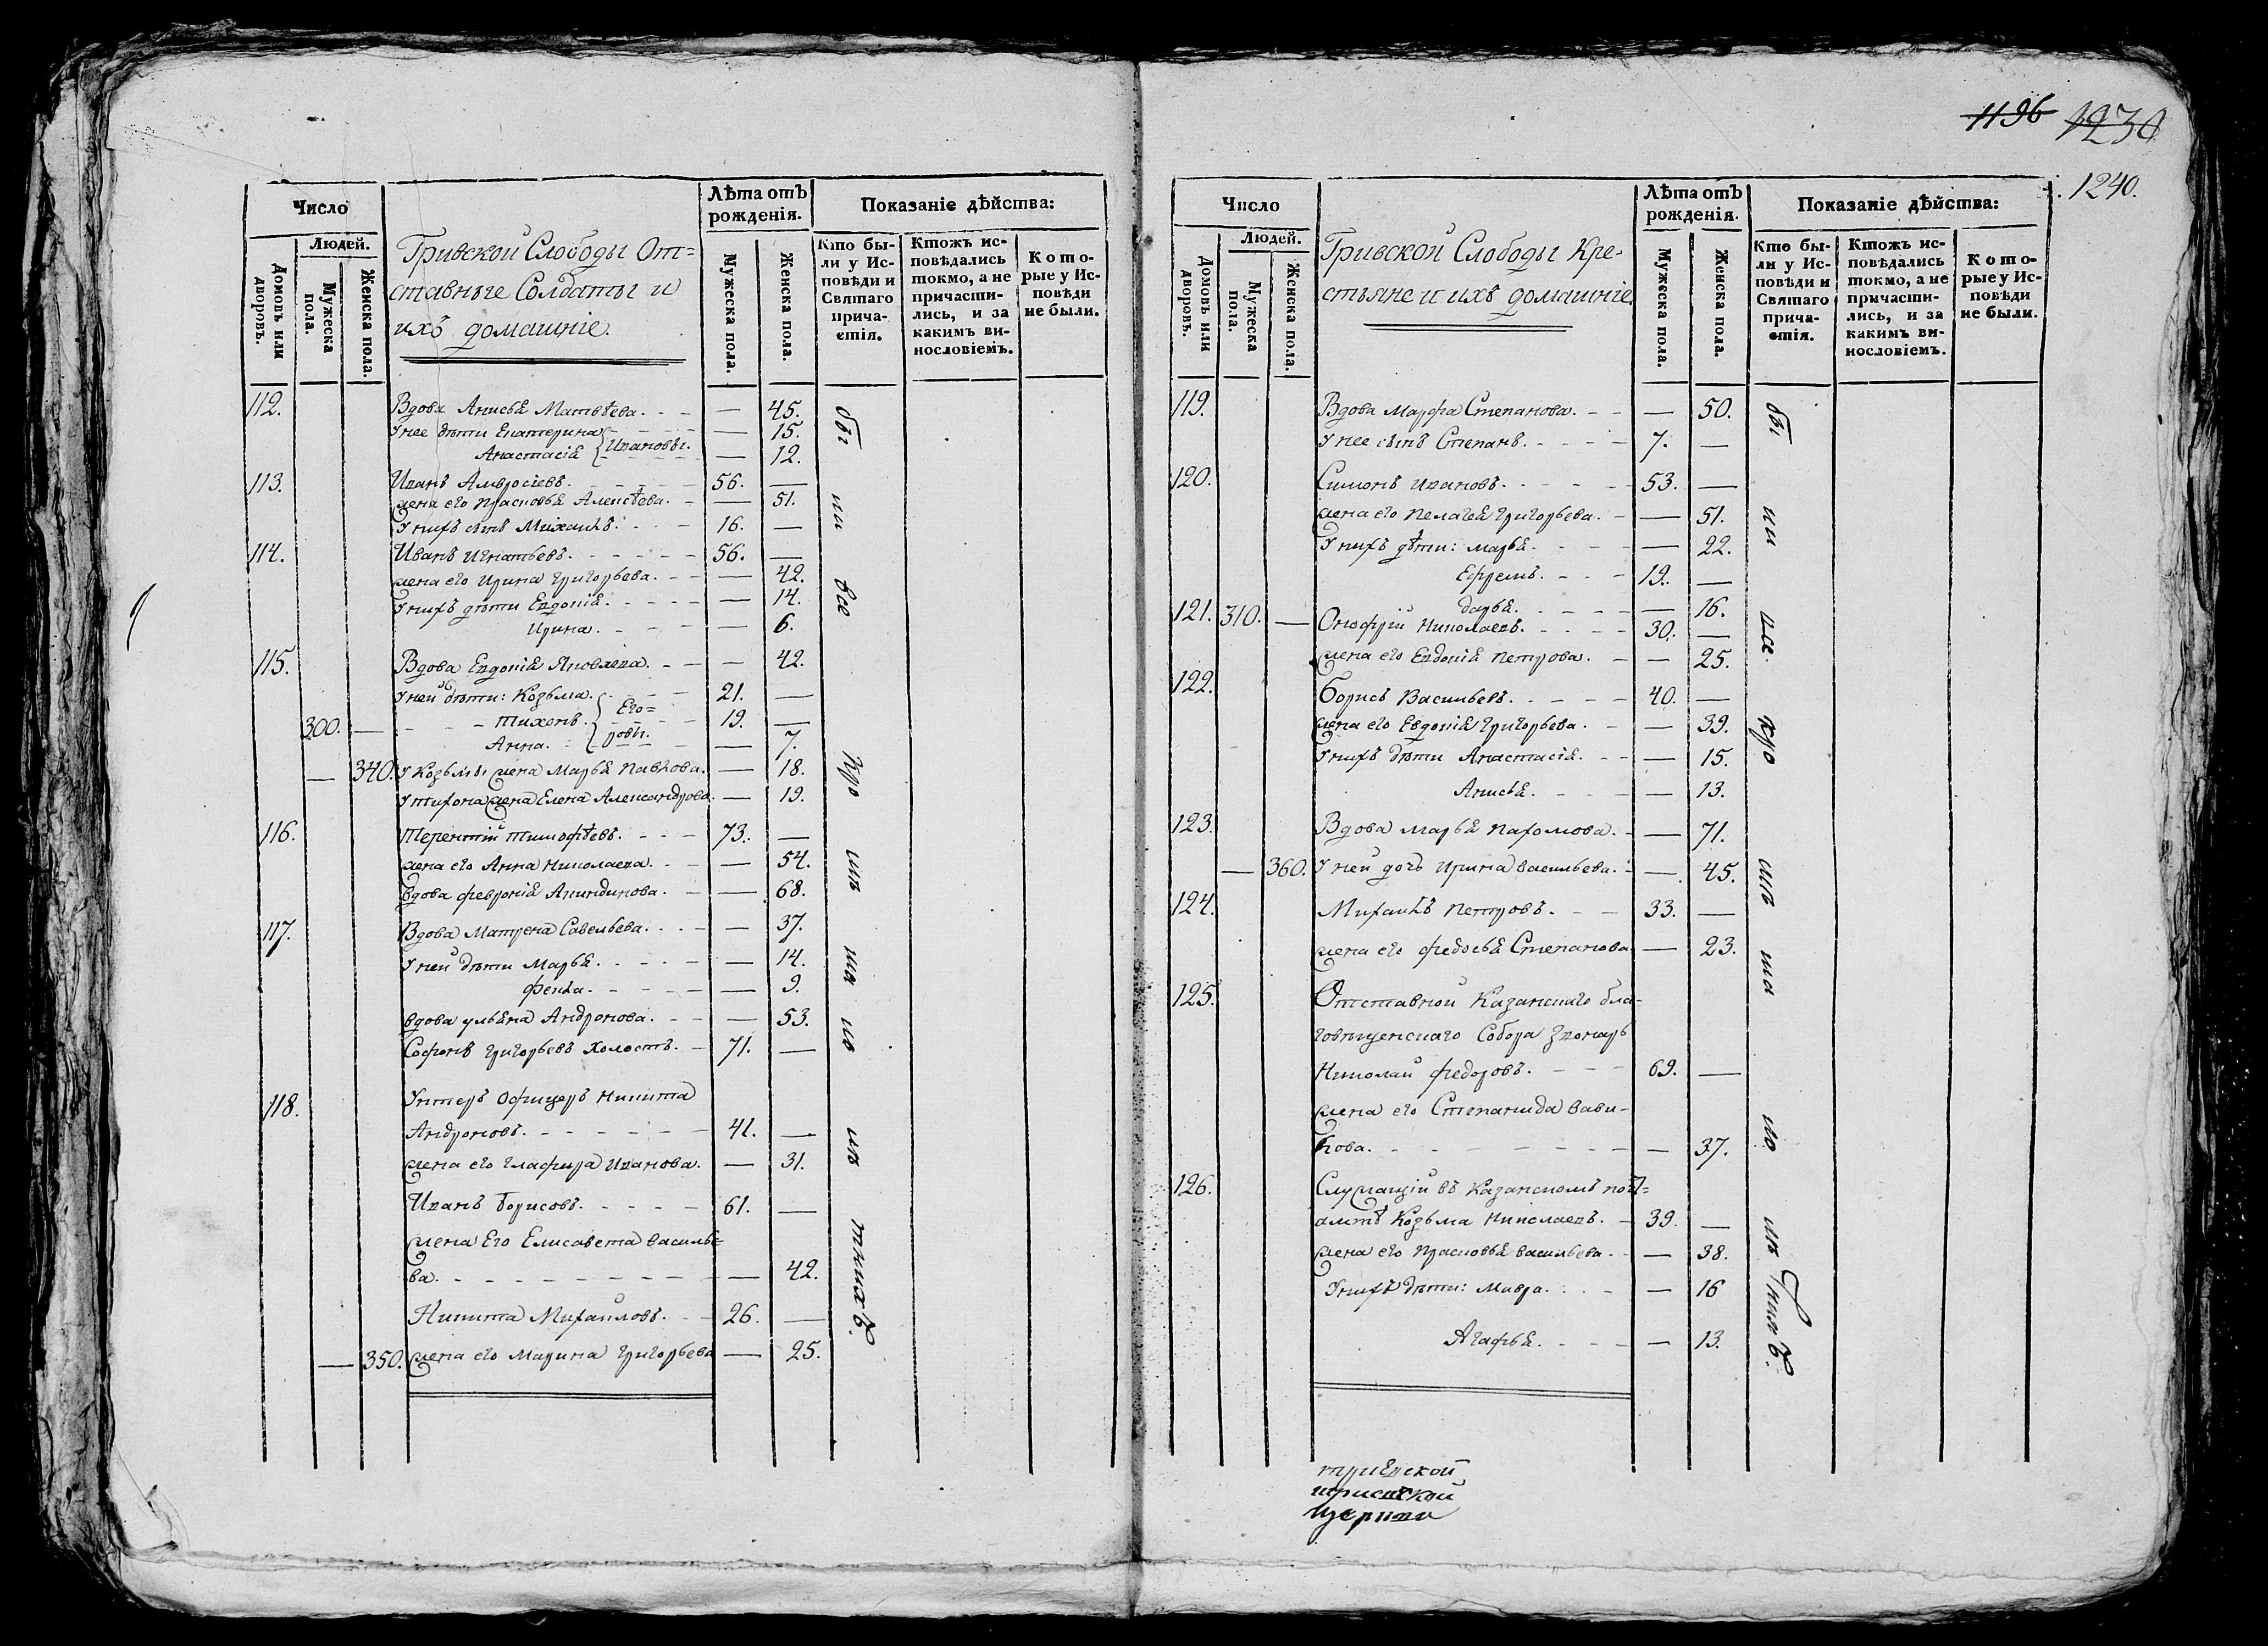 1196 1230
1240.
Число
Людей.
Домовъ или дворовъ.
Мужеска пола.
Женска пола.
Гривской Слободы От=
ставные Солдаты и
ихъ домашніе.
Лѣта отъ рожденія.
Мужеска пола.
Женска пола.
Показаніе дѣйства:
Кто бы-
ли у Ис-
повѣди и
Святаго
прича-
стія.
Ктожъ ис-
повѣдались
токмо, а не
причасти-
лись, и за
какимъ ви-
нословіемъ.
Кото-
рые у Ис-
повѣди
не были.
112. Вдова Анисья Матвѣева. — 45.
У нее дѣти Екатерина — 15.
Анастасія Ивановы. — 12.
113. Иванъ Амвросіевъ. 56. —
жена его Прасковья Алексѣева. — 51.
У нихъ сынъ Михаилъ. 16. —
114. Иванъ Игнатьевъ. 56. —
жена его Ирина Григорьева. — 42.
У нихъ дѣти Евдокія. — 14.
Ирина. — 6.
115. Вдова Евдокія Яковлева. — 42.
У ней дѣти: Козьма. 21. —
300. — Тихонъ. Его= 19. —
Анна. ровы. — 7.
— 340. У Козьмы жена Марья Павлова. — 18.
У Тихона жена Елена Александрова. — 19.
116. Терентій Тимофѣевъ. 73. —
жена его Анна Николаева. — 54.
вдова Февронія Акиндинова. — 68.
117. Вдова Матрена Савельева. — 37.
У ней дѣти Марья. — 14.
Фекла. — 9.
вдова Ульяна Андронова. — 53.
Софонъ Григорьевъ холостъ. 71. —
118. Унтеръ Офицеръ Никита
Андроновъ. 41. —
жена его Глафира Иванова. — 31.
Иванъ Борисовъ. 61. —
жена Его Елисавета Василье=
ва. — 42.
Никита Михайловъ. 26. —
— 350. жена его Марина Григорьева — 25.
бы
ли
все
кро
мѣ
ма
ло
лѣ
тныхъ.
Число
Людей.
Домовъ или дворовъ.
Мужеска пола.
Женска пола.
Гривской Слободы Кре-
стьяне и ихъ домашніе
Лѣта отъ рожденія.
Мужеска пола.
Женска пола.
Показаніе дѣйства:
Кто бы-
ли у Ис-
повѣди и
Святаго
прича-
стія.
Ктожъ ис-
повѣдались
токмо, а не
причасти-
лись, и за
какимъ ви-
нословіемъ.
Кото-
рые у Ис-
повѣди
не были.
119. Вдова Марфа Степанова. — 50.
У нее сынъ Степанъ. 7. —
120. Симонъ Ивановъ. 53. —
жена его Пелагея Григорьева. — 51.
У нихъ дѣти: Марья. — 22.
Ефремъ. 19. —
Дарья. — 16.
121. 310. — Онофрій Николаевъ. 30. —
жена его Евдокія Петрова. — 25.
122. Борисъ Васильевъ. 40. —
жена его Евдокія Григорьева. — 39.
У нихъ дѣти Анастасія. — 15.
Анисья. — 13.
123. Вдова Марья Пахомова. — 71.
— 360. У ней дочь Ирина Васильева. — 45.
124. Михаилъ Петровъ. 33. —
жена его Федосья Степанова — 23.
125. Отставной Казанскаго бла-
говѣщенскаго Собора Звонарь
Николай Федоровъ. 69. —
жена его Степанида Вави-
лова. — 37.
126. Служащій въ Казанском поч=
амтѣ Козьма Николаевъ. 39. —
жена его Прасковья Васильева. — 38.
У нихъ дѣти: Мавра. — 16
Агафья. — 13.
бы
ли
все
кро
мѣ
ма
ло
лѣтнихъ.
церкви